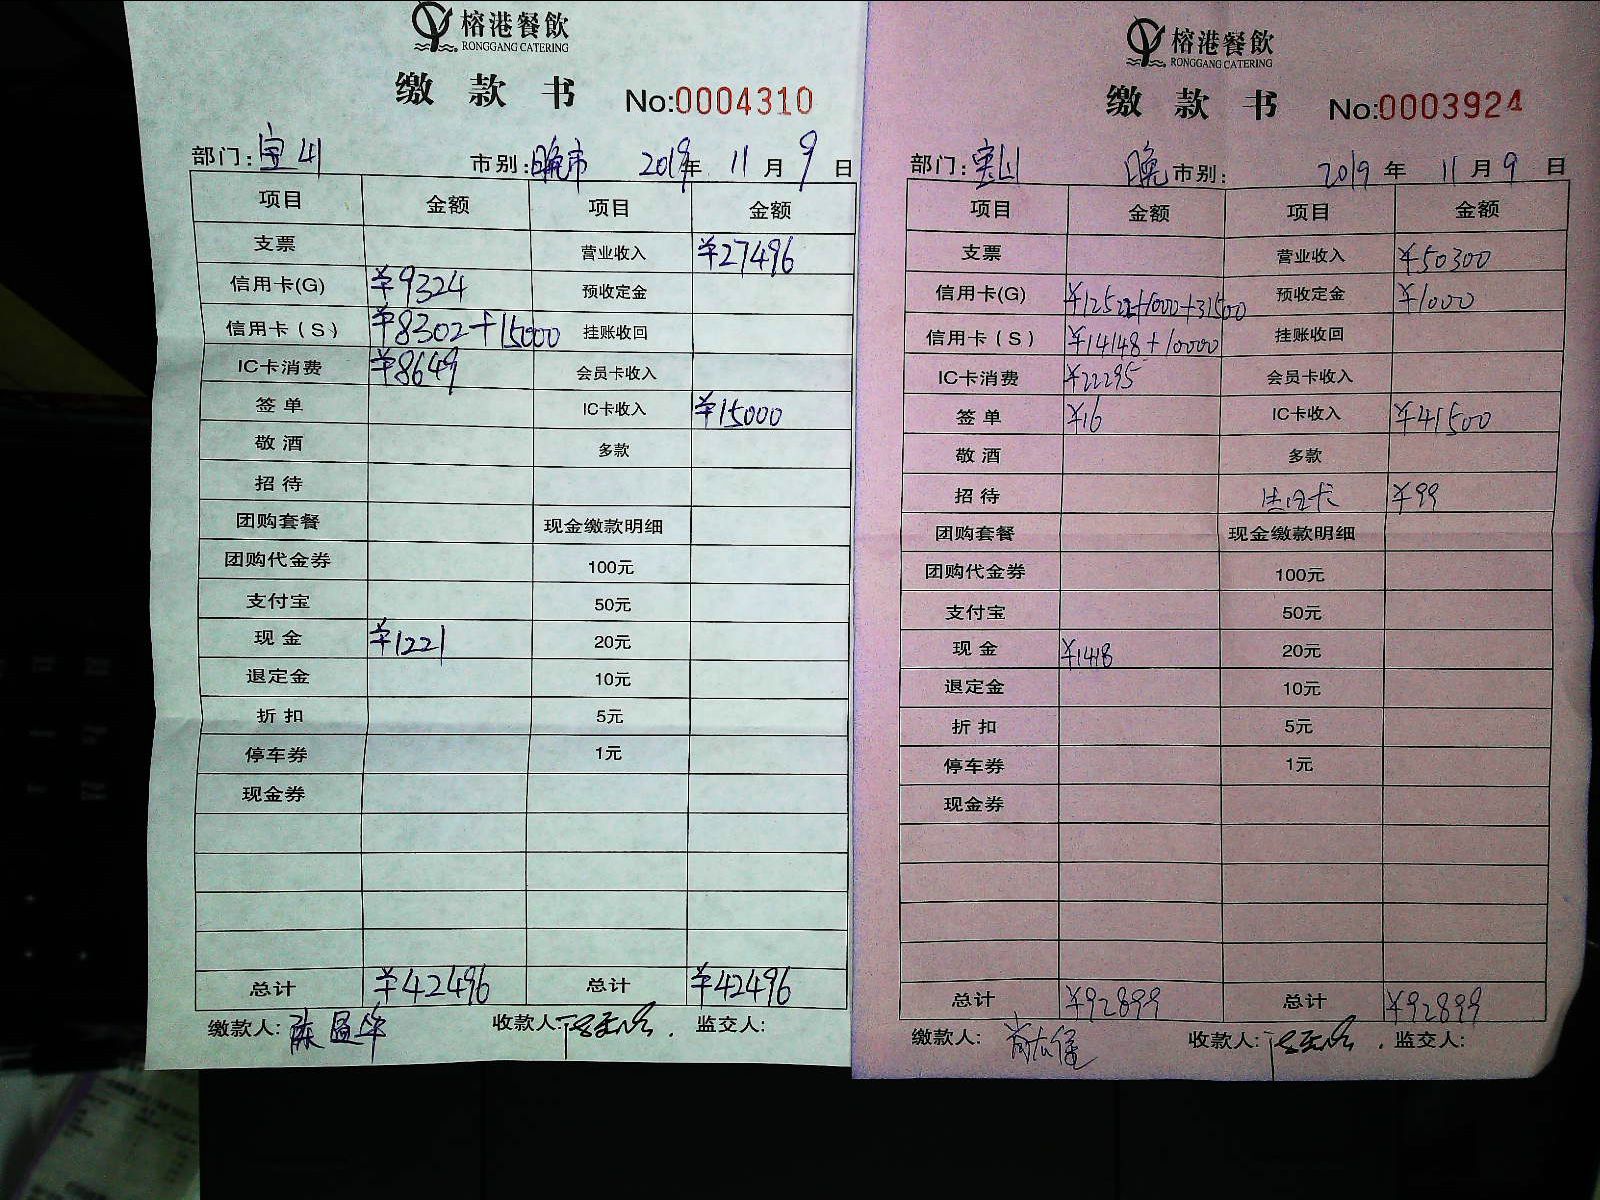 榕港餐飲
RONGGANG CATERING
缴款书 No:0004310
部门: 宝山 市别: 晚市 2019年 11月 9日
项目 金额 项目 金额
支票 营业收入 ¥27496
信用卡(G) ¥9324 预收定金
信用卡(S) ¥8302+15000 挂账收回
IC卡消费 ¥8649 会员卡收入
签单 IC卡收入 ¥15000
敬酒 多款
招待
团购套餐 现金缴款明细
团购代金券 100元
支付宝 50元
现金 ¥1221 20元
退定金 10元
折扣 5元
停车券 1元
现金券
总计 ¥42496 总计 ¥42496
缴款人: 收款人: 监交人:
榕港餐飲
RONGGANG CATERING
缴款书 No:0003924
部门: 宝山 晚市别: 2019年 11月 9日
项目 金额 项目 金额
支票 营业收入 ¥50300
信用卡(G) ¥12522+1000+31500 预收定金 ¥1000
信用卡(S) ¥14148+10000 挂账收回
IC卡消费 ¥22295 会员卡收入
签单 ¥16 IC卡收入 ¥41500
敬酒 多款
招待 ¥99
团购套餐 现金缴款明细
团购代金券 100元
支付宝 50元
现金 ¥1418 20元
退定金 10元
折扣 5元
停车券 1元
现金券
总计 ¥92899 总计 ¥92899
缴款人: 收款人: 监交人: